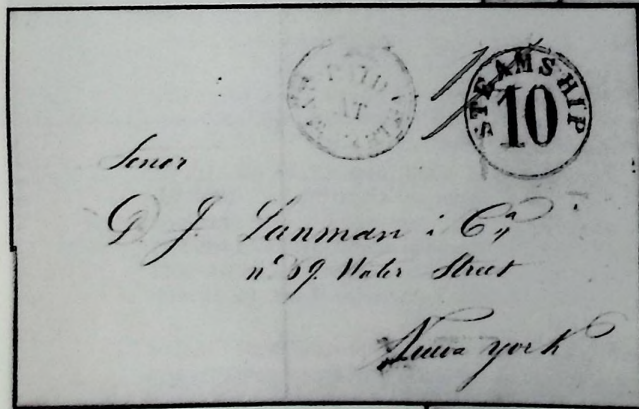 PAID
AT
STEAMSHIP
10
Senor
G. J. Lanman i Cª
nº 69. Water Street
Nueva york